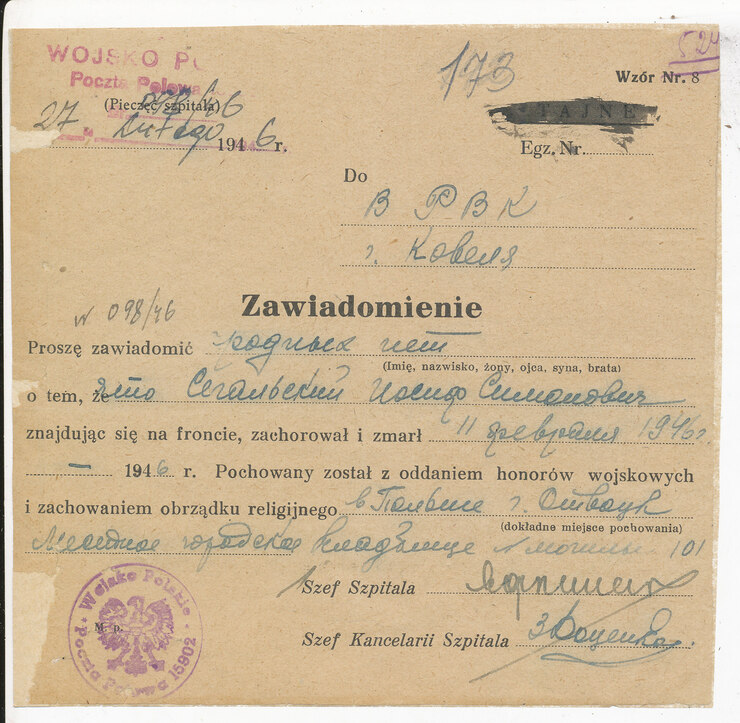 524
WOJSKO PO
173
Poczta Polowa
Wzór Nr. 8
(Pieczęć szpitala)
TAJNE
27 Lutego 1946 r.
Egz. Nr.
Do
В РВК
г. Ковеля
Zawiadomienie
N 098/46
Proszę zawiadomić родных нет
(Imię, nazwisko, żony, ojca, syna, brata)
o tem, że что Сегальский Иосиф Симонович
znajdując się na froncie, zachorował i zmarł 11 февраля 1946 г.
— 1946 r. Pochowany został z oddaniem honorów wojskowych
i zachowaniem obrządku religijnego в Польше г. Отвоцк
(dokładne miejsce pochowania)
Местное городское кладбище 101
Szef Szpitala
M. p.
Szef Kancelarii Szpitala З Доценко
Wojsko Polskie
Poczta Polowa 15902